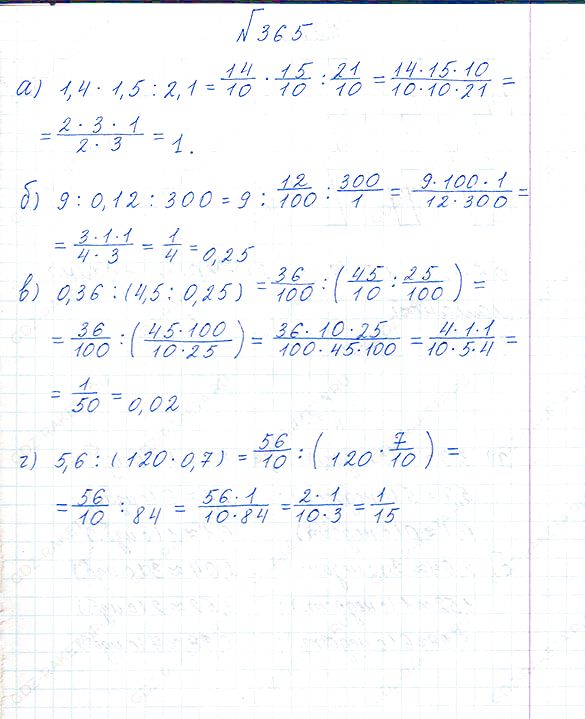 №365
а) 1,4 · 1,5 : 2,1 = 14/10 · 15/10 : 21/10 = 14·15·10/10·10·21 =
= 2·3·1/2·3 = 1.
б) 9 : 0,12 : 300 = 9 : 12/100 : 300/1 = 9·100·1/12·300 =
= 3·1·1/4·3 = 1/4 = 0,25
в) 0,36 : (4,5 : 0,25) = 36/100 : (45/10 : 25/100) =
= 36/100 : (45·100/10·25) = 36·10·25/100·45·100 = 4·1·1/10·5·4 =
= 1/50 = 0,02
г) 5,6 : (120 · 0,7) = 56/10 : (120 · 7/10) =
= 56/10 : 84 = 56·1/10·84 = 2·1/10·3 = 1/15